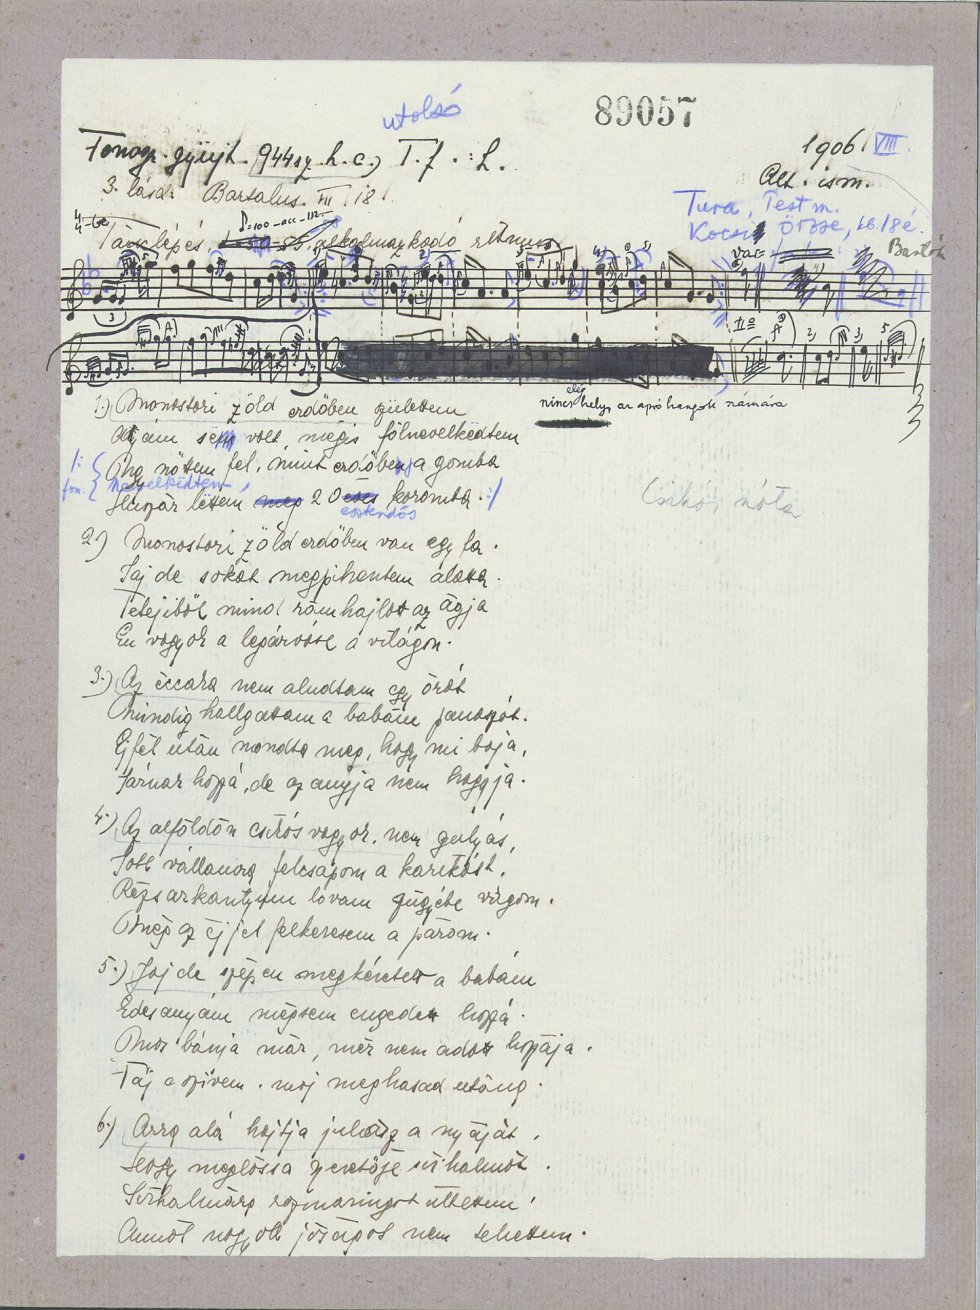 utolsó
89057
Fonogr. gyűjt. 944sz. h. c.) T. f. : L.
1906 VIII.
3. lásd: Bartalus. III. 181
Ált. ism.
Tura, Pest m.
Kocsis Örzse,
Bartók
4-be
4
Tánclépés, alkalmazkodó ritmus
var.
IIo
elég
nincs hely az apró hangok számára
1.) Monostori zöld erdőben születtem
volt, mégis fölnevelkedtem
nőttem fel, mint erdőben a gomba
nevelkedtem,
fon.
Huszár lettem 20 koromba :/
esztendős
Csikós nóta
2.) Monostori zöld erdőben van egy fa.
Jaj de sokat megpihentem alatta.
Tetejiből mind rám hajlott az ágja
Én vagyok a legárvább a világon.
3.) Az éccaka nem aludtam egy órát
Mindig hallgattam a babám panaszát.
Éjfél után mondta meg, hogy mi baja,
Járnak hozzá, de az anyja nem haggja.
4.) Az alföldön csikós vagyok, nem gulyás,
vállamra felcsapom a karikást,
Rézsarkantyum lovam vágom.
Még az éjjel felkeresem a párom.
5.) Jaj de szépen megkéretett a babám
Édesanyám mégsem engedett hozzá.
Mos' bánja már, mér nem adott hozzája.
Fáj a szívem. maj meghasad utána.
6.) Arra alá hajtja juhász a nyáját,
Hogy meglássa szeretője sírhalmát.
Sírhalmára rozmaringot ültettem,
Annál nagyobb jót nem tehettem.